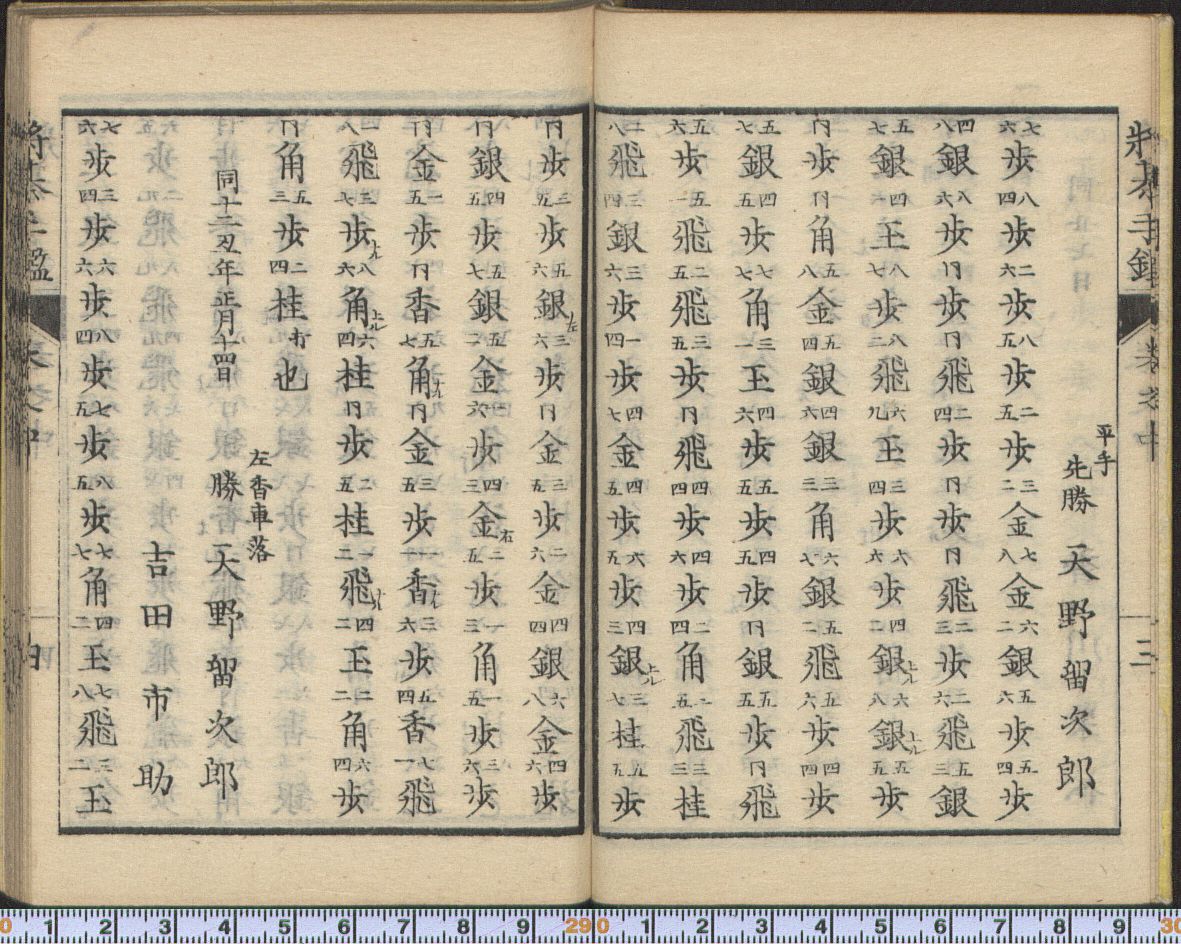 将棊手鑑 巻之中 三
平手 先勝 天野留次郎
七六歩八四歩二六歩八五歩二五歩三二金七八金六二銀五六歩五四歩
四八銀八六歩同歩同飛二四歩同歩同飛二三歩二六飛五三銀
五七銀四一王八七歩八二飛六九王三四歩六六歩六二銀上ル六八銀上ル五五歩
同歩同角五八金五四銀四六銀三三角六七銀五二飛五六歩四四歩
五七銀四五歩七七角三一玉四六歩五五歩四五歩同銀五五歩同飛
五六歩五一飛二五飛三五歩同飛四四歩四六歩二四角二五飛三三桂
二八飛三四銀三六歩一四歩四七金四五歩六五歩六三銀上ル三七桂五五歩
同歩三五歩五六銀左三六歩同金三五歩二六金四四銀六八金四六歩
同銀四五銀五七銀五二金一六歩四三金右二五歩一三角一五歩三六歩
同金一五歩同香五七角ナル同金三五歩一一香ナル三六歩五四香七一飛
一八飛三七歩ナル八六角上ル六四桂同歩二五桂一二飛ナル四二玉二二角六四歩
同角五三歩二四桂打也
同十二丑年正月十四日
左香車落
勝 天野留次郎
吉田市助
七六歩三四歩六六歩八四歩七五歩八五歩七七角四二玉七八飛三二玉
将棊手鑑 巻之中 四